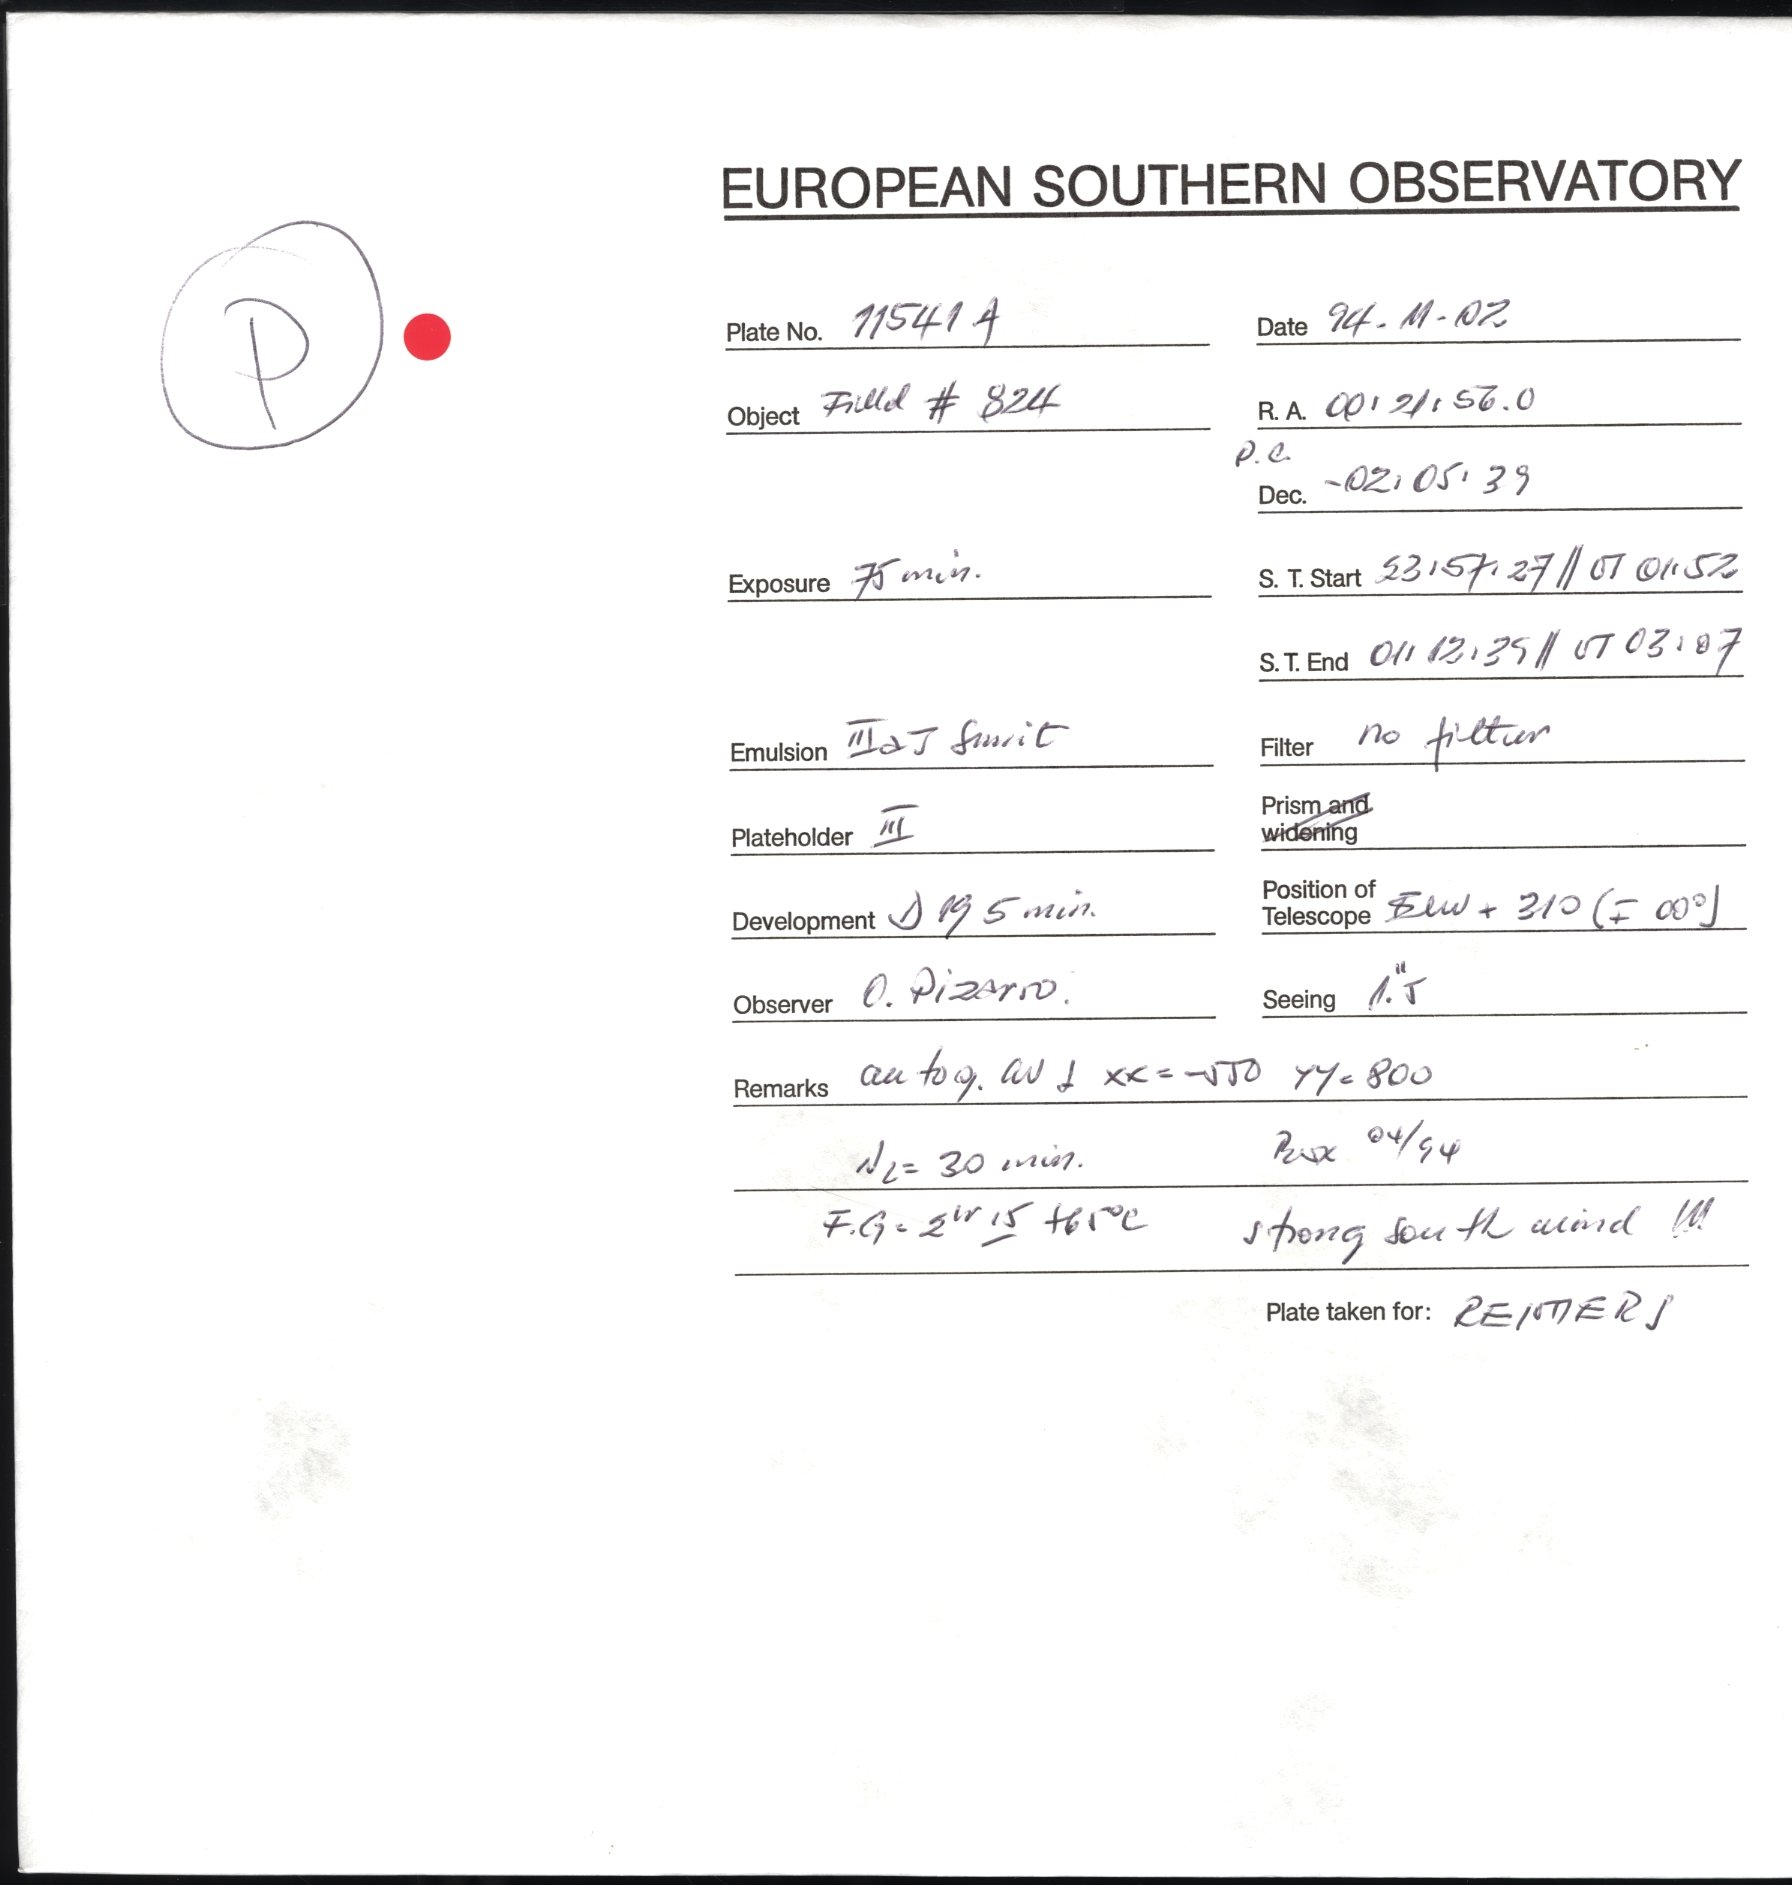 EUROPEAN SOUTHERN OBSERVATORY
P
Plate No. 11541 A
Date 94-11-02
Object Field # 824
R. A. 00:21:56.0
P.C.
Dec. -02:05:39
Exposure 75 min.
S. T. Start 23:57:27 // UT 01:52
S. T. End 01:12:39 // UT 03:07
Emulsion IIIaJ
Filter no filter
Plateholder III
Prism and widening
Development D19 5 min.
Position of Telescope + 310 (∓ 00°)
Observer O. Pizarro.
Seeing 1."5
Remarks autog. xx = -550 yy = 800
N2 = 30 min. 04/94
F.G = 15 +65°C strong south wind !!!
Plate taken for: REIMERS